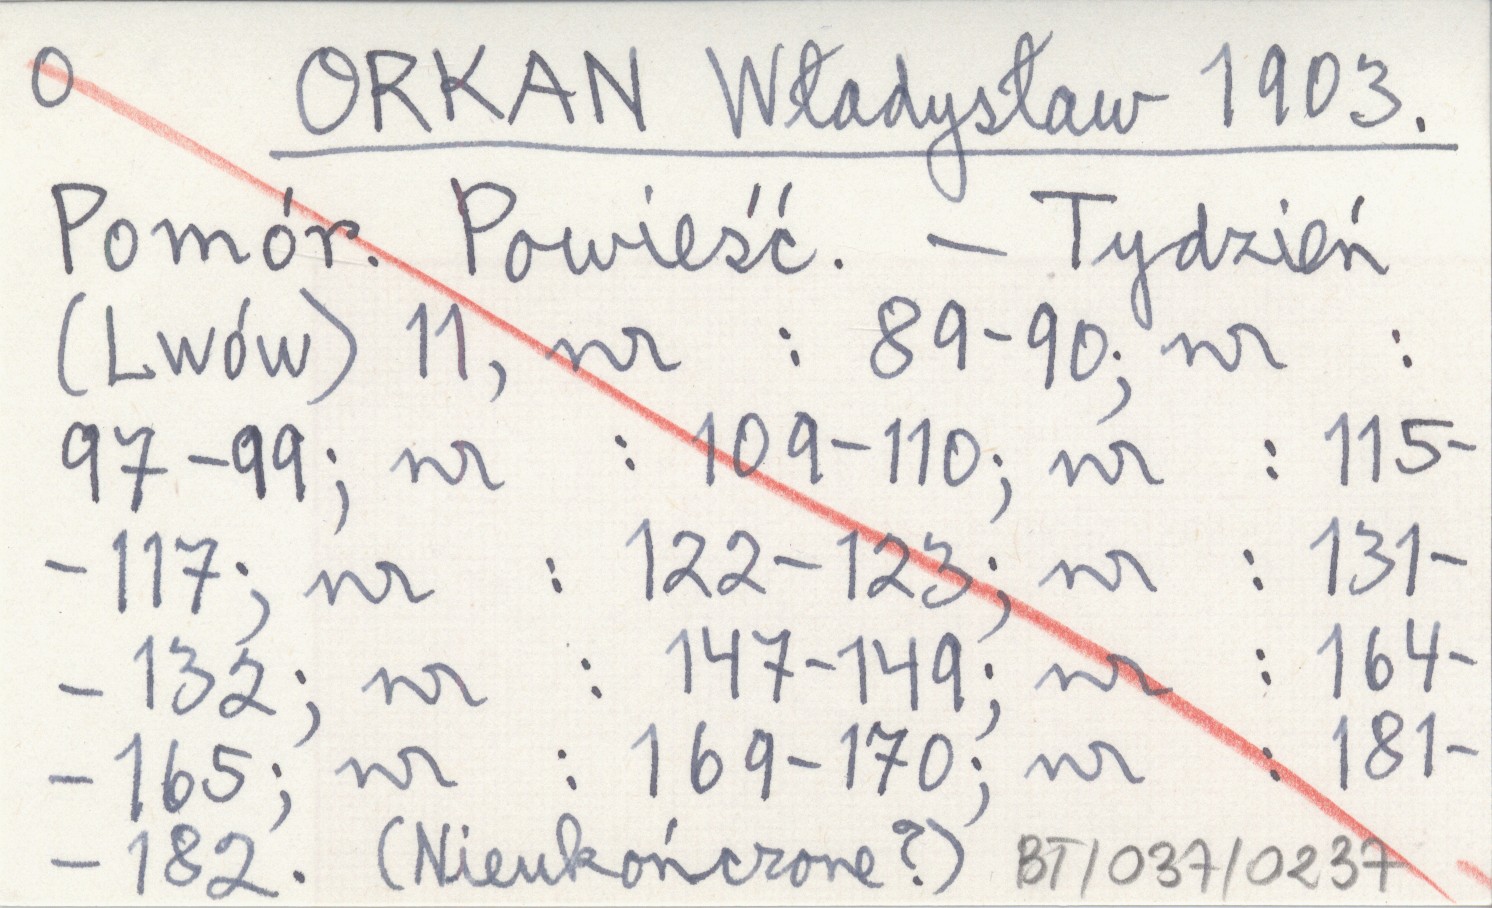 O ORKAN Władysław 1903.
Pomór. Powieść. — Tydzień
(Lwów) 11, nr : 89-90; nr :
97-99; nr : 109-110; nr : 115-
-117; nr : 122-123; nr : 131-
-132; nr : 147-149; nr : 164-
-165; nr : 169-170; nr : 181-
-182. (Nieukończone?) BT/037/0237